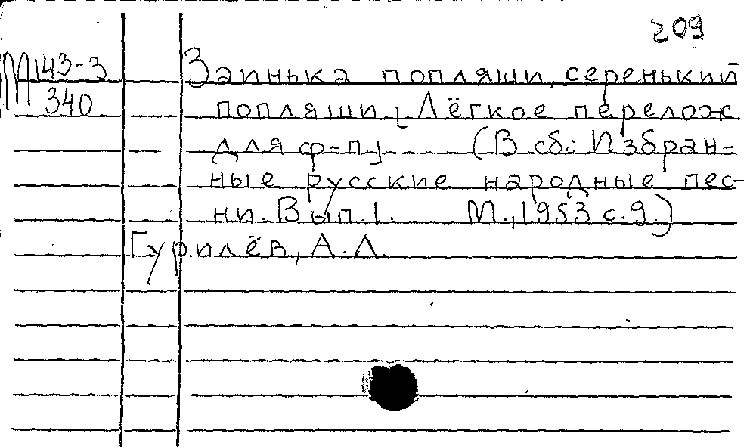 209
М143-3
340
Заинька попляши, серенький
попляши [Лёгкое перелож
для ф-п] (В сб.: Избран-
ные русские народные пес-
ни. Вып. 1. М., 1953 с. 9.)
Гурилёв, А. Л.